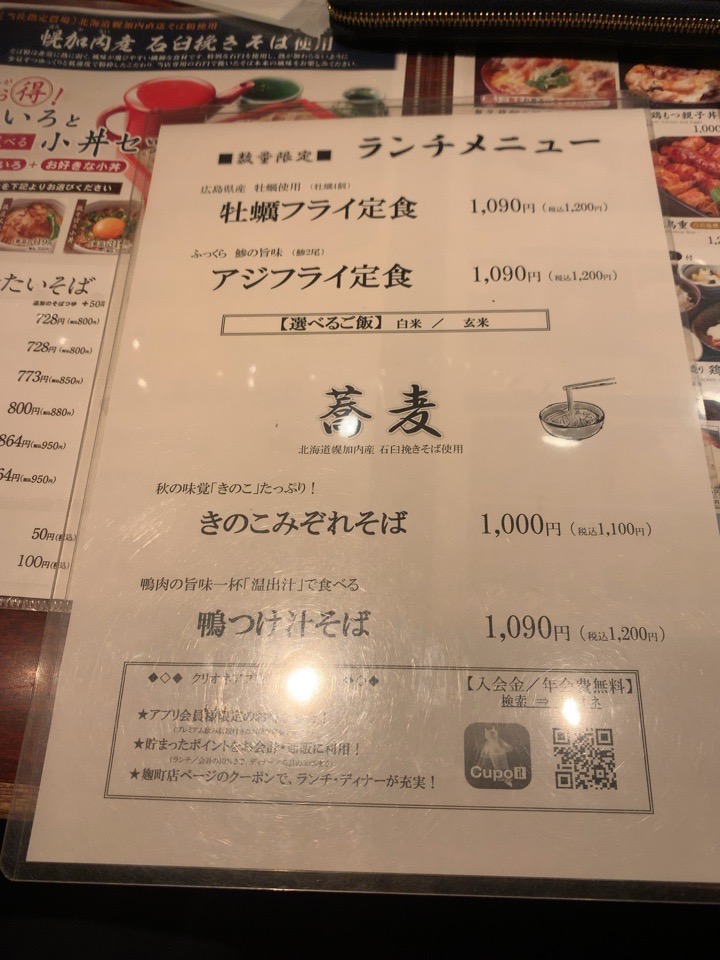 幌加内産 石臼挽きそば使用
お得！
いろと
小丼セッ
いろ + お好きな小丼
を下記よりお選びください
たいそば
追加のそばつゆ +50円
728円(税込800円)
728円(税込800円)
773円(税込850円)
800円(税込880円)
864円(税込950円)
64円(税込950円)
50円(税込)
100円(税込)
鶏もつ親子丼
1,000
■数量限定■ ランチメニュー
広島県産 牡蠣使用 (牡蠣4個)
牡蠣フライ定食 1,090円(税込1,200円)
ふっくら 鯵の旨味 (鯵2尾)
アジフライ定食 1,090円(税込1,200円)
【選べるご飯】 白米 ／ 玄米
蕎麦
北海道幌加内産 石臼挽きそば使用
秋の味覚「きのこ」たっぷり！
きのこみぞれそば 1,000円(税込1,100円)
鴨肉の旨味一杯「温出汁」で食べる
鴨つけ汁そば 1,090円(税込1,200円)
◆◇◆ クリオネアプリ ◇◆
【入会金／年会費無料】
検索 ⇒ ネ
★アプリ会員様限定のお
★貯まったポイントをお会計・通販に利用！
★麹町店ページのクーポンで、ランチ・ディナーが充実！
Cupo